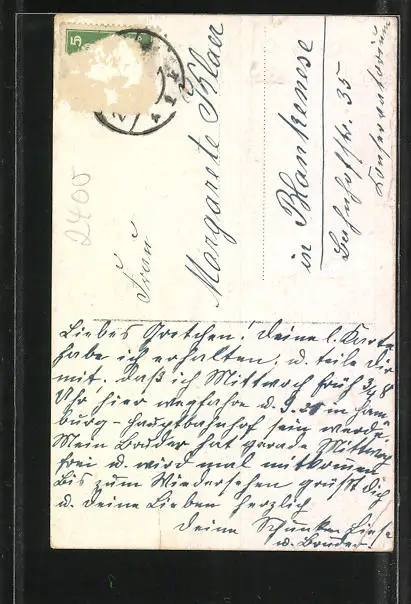 5
2400
Frau
Margarete Klair
in Blankenese
Bahnhofstr. 35
Konservatorium
Liebes Gretchen! Deine l. Karte
habe ich erhalten, u. teile Dir
mit, daß ich Mittwoch früh 3/4 8
Uhr hier wegfahre u. in Ham
burg-Hauptbahnhof sein werde.
Mein Bruder hat gerade Mittwoch
frei u. wird mal mitkommen
Bis zum Wiedersehen grüßt Dich
u. Deine Lieben herzlich
Deine
u. Bruder.